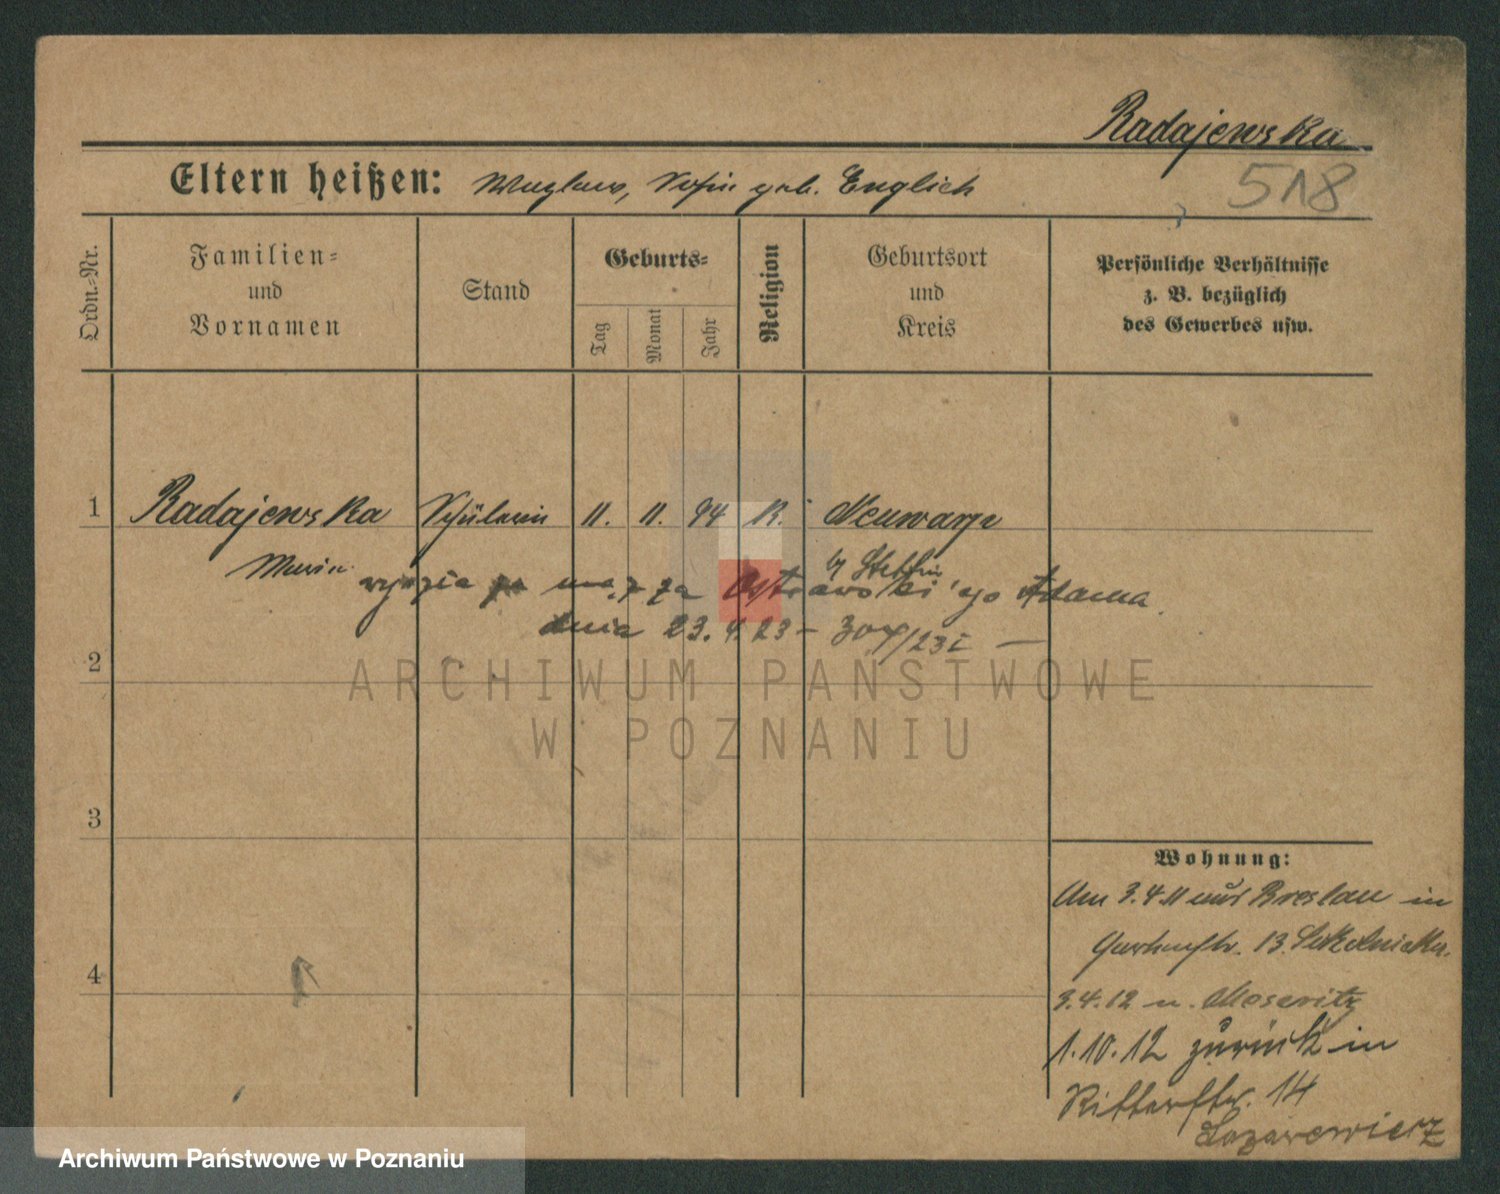 Radajewska
518
Eltern heißen: geb. Englich
Ordn.-Nr.
Familien-
und
Vornamen
Stand
Geburts-
Tag
Monat
Jahr
Religion
Geburtsort
und
Kreis
Persönliche Verhältnisse
z. B. bezüglich
des Gewerbes usw.
1 Radajewska Schülerin 11. 11. 94 K. Neuwarp
b/ Stettin
Marie
za Ostrowski'ego Adama
dnia 23. 4. 23 –
2
ARCHIWUM PAŃSTWOWE
W POZNANIU
3
Wohnung:
Am 3.4.11 aus Breslau in
13.
4
3.4.12 n. Meseritz
1.10.12 zurück in
Ritterstr. 14
Lazarewicz
Archiwum Państwowe w Poznaniu